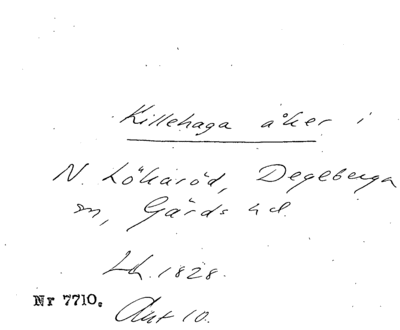 Killehaga åker i
N. Lökaröd, Degeberga
sn, Gärds hd.
Lh. 1828.
Nr 7710.
Akt 10.